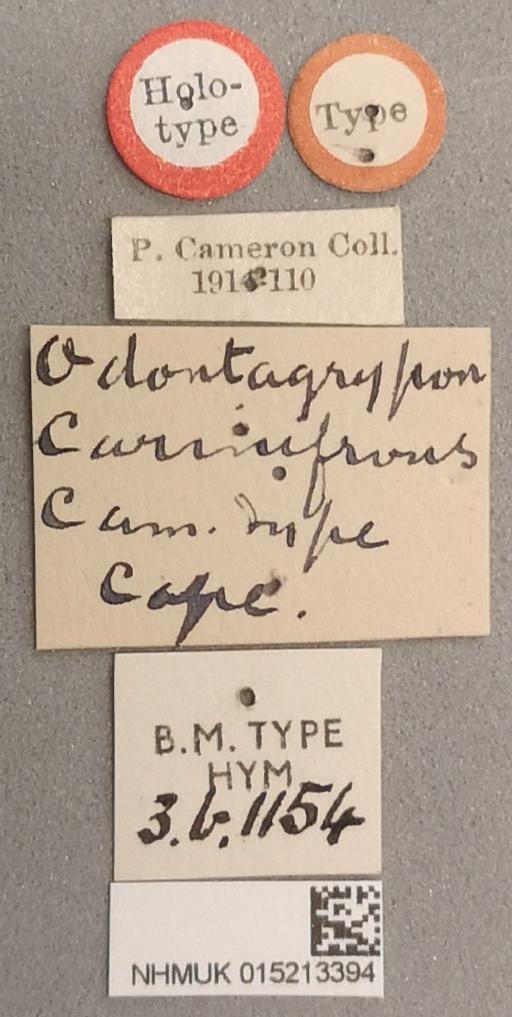 Holo-
type
Type
P. Cameron Coll.
1914-110
Odontagrypon
Carinifrons
Cam. Type
Cape.
B.M. TYPE
HYM
3.b.1154
NHMUK 015213394